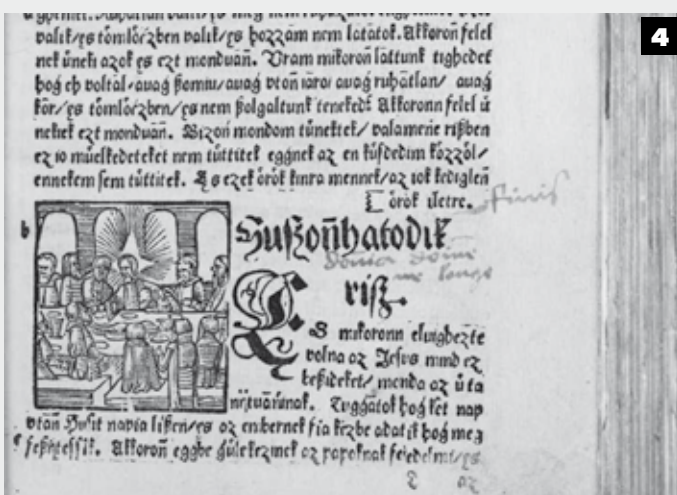 valik/ęs tömlöczben valik/ęs hozzam nem latatok. Akkoroñ felel
nek üneki azok ęs ezt monduañ. Vram mikoron lattunk tighedet
hoǵ eh voltal/auag ßomiu/auag vtoñ iaro/ auag ruhātlan/ auag
kór/ęs tömlöczben/ęs nem ßolgaltunk Akkoronn felel ü
nekiek ezt monduañ. Bizoń mondom tünektek/ valamenie rißben
ez io müelkedeteket nem tüttitek eggnek az en küsdedim közzöl/
ennekem sem tüttitek. Es ezek örök kinra mennek/az iok kediglen̄
örök iletre. finis
b
Hußoñhatodik
riß.
ES mikoronn eluighezte
volna az Jesus mind ez
beßideket/ monda az ü ta
nituāńinak. Tuggátok hoǵ ket nap
vtāń Husit napia lißen/ęs az enbernek fia kezbe adatik hoǵ meg
feßitessik. Akkoroń eggbe gülekezinek az papoknak feiedelmi/ęs
az
4